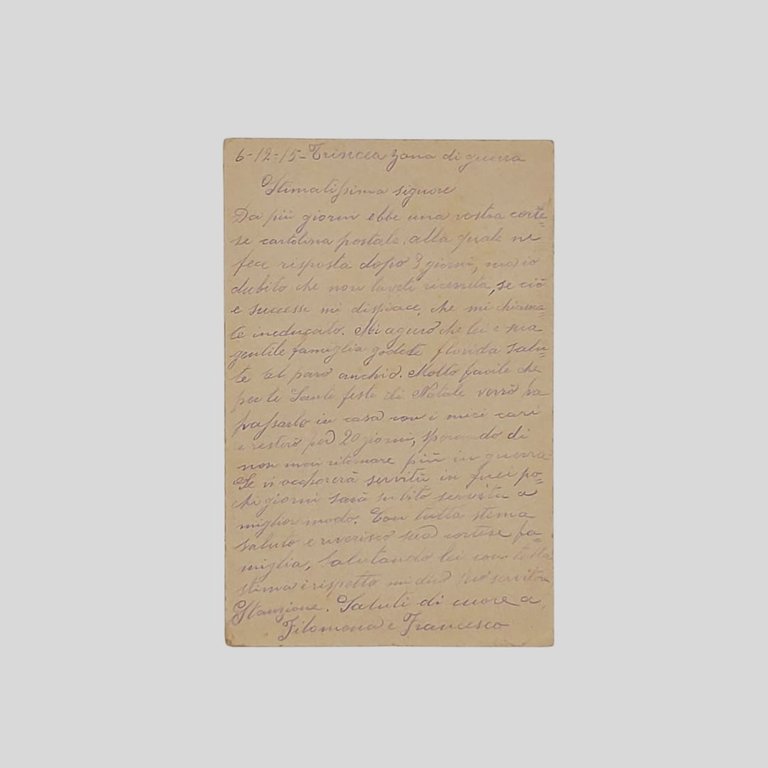 6-12-15- Trincea zona di guerra
Stimatissimo signore
Da più giorni ebbe una vostra corte=
se cartolina postale, alla quale ne
fece risposta dopo 3 giorni, ma io
dubito che non lavete ricevuta, se ciò
e successe mi dispiace, che mi chiama=
te ineducato. Mi aguro che lei e sua
gentile famiglia godete florida salu=
te al paro anchio. Molto facile che
per le Sante feste di Natale verrò pa
passarlo in casa con i miei cari
e resterò per 20 giorni, sperando di
non più in guerra
Se vi occhorerà servitù in quei po=
chi giorni sarà subito servita a
miglior modo. Con tutta stima
saluto e riverisco sua cortese fa=
miglia, Salutando lei con tutta
stima e rispetto mi dico suo servitore
Stanzione. Saluti di cuore a
Filomena e Francesco